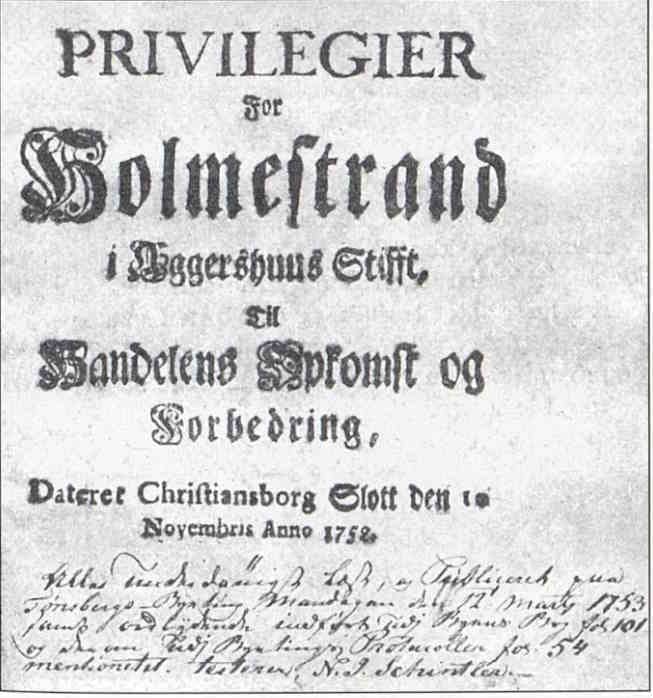 PRIVILEGIER
For
Holmestrand
i Aggershuus Stifft,
Til
Handelens Opkomst og
Forbedring,
Dateret Christiansborg Slott den 10
Novembris Anno 1752.
Aller underdanigst læst, og Publiceret paa
Tønsbergs Byeting, Mandagen den 12 Marty 1753
samt ordlydende indført udj Byens Bog fol 101
og derom udj Bytings Protocollen fol. 54
mentionetet. testerer, N. J. Schindler